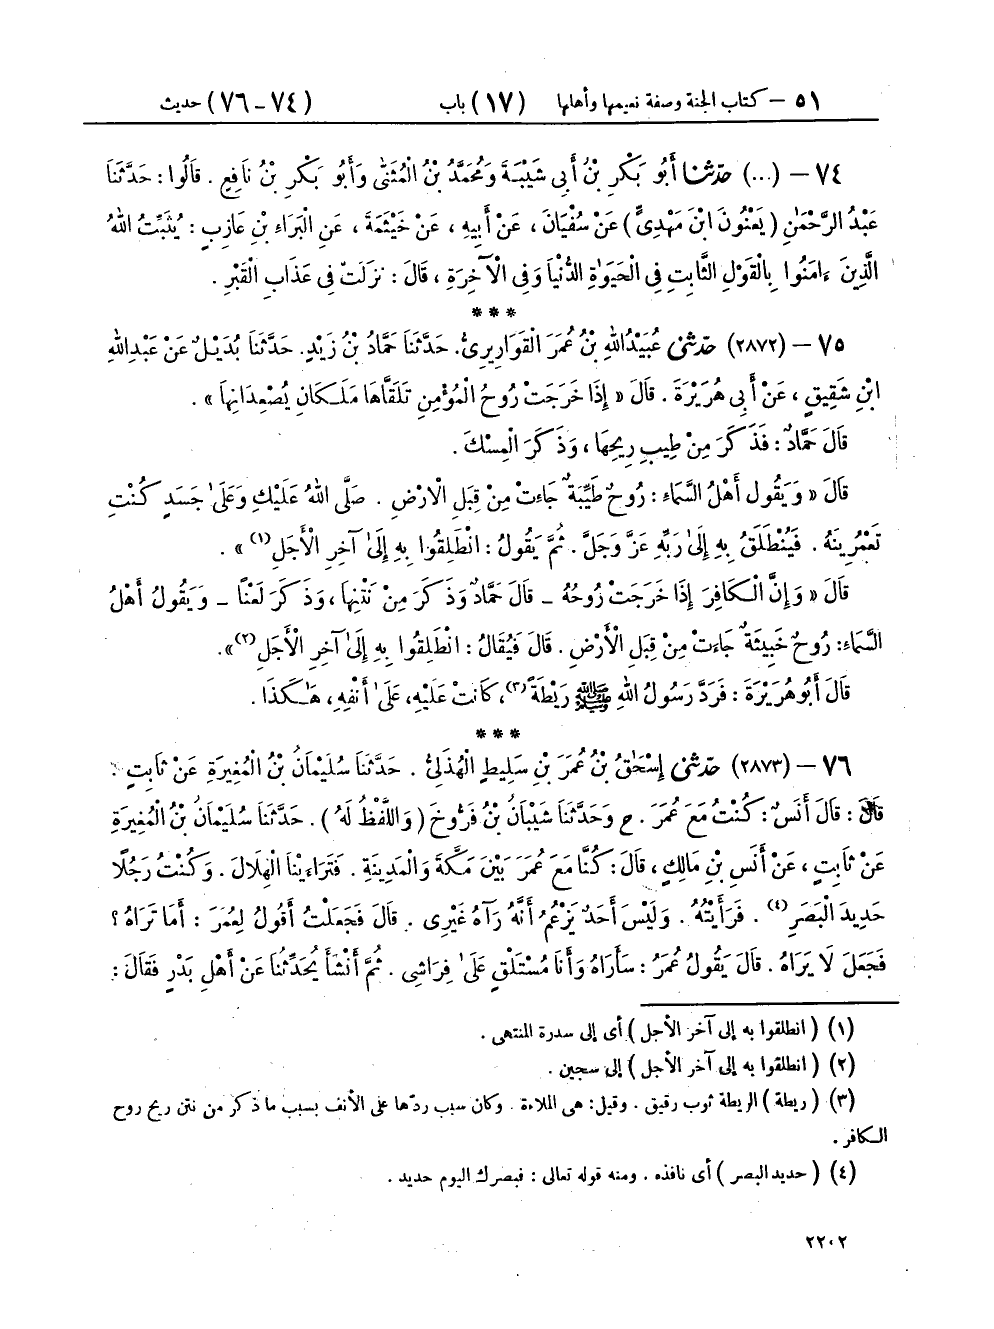 ٥١ – كتاب الجنة وصفة نعيمها وأهلها (١٧) باب (٧٤-٧٦) حديث
٧٤ – (...) حدّثنا أَبُو بَكْرِ بْنُ أَبِي شَيْبَةَ وَمُحَمَّدُ بْنُ الْمُثَنَّىٰ وَأَبُو بَكْرِ بْنُ نَافِعٍ . قَالُوا : حَدَّثَنَا
عَبْدُ الرَّحْمَٰنِ ( يَعْنُونَ ابْنَ مَهْدِىٍّ ) عَنْ سُفْيَانَ ، عَنْ أَبِيهِ ، عَنْ خَيْثَمَةَ ، عَنِ الْبَرَاءِ بْنِ عَازِبٍ : يُثَبِّتُ اللهُ
الَّذِينَ ءَامَنُوا بِالْقَوْلِ الثَّابِتِ فِى الْحَيَوٰةِ الدُّنْيَا وَفِى الْآخِرَةِ ، قَالَ : نَزَلَتْ فِى عَذَابِ الْقَبْرِ .
* * *
٧٥ – (٢٨٧٢) حدّثنى عُبَيْدُاللهِ بْنُ عُمَرَ الْقَوَارِيرِىُّ. حَدَّثَنَا حَمَّادُ بْنُ زَيْدٍ. حَدَّثَنَا بُدَيْلٌ عَنْ عَبْدِاللهِ
ابْنِ شَقِيقٍ ، عَنْ أَبِى هُرَيْرَةَ . قَالَ « إِذَا خَرَجَتْ رُوحُ الْمُؤْمِنِ تَلَقَّاهَا مَلَكَانِ يُصْعِدَانِهَا » .
قَالَ حَمَّادٌ : فَذَكَرَ مِنْ طِيبِ رِيحِهَا ، وَذَكَرَ الْمِسْكَ .
قَالَ « وَيَقُولُ أَهْلُ السَّمَاءِ : رُوحٌ طَيِّبَةٌ جَاءَتْ مِنْ قِبَلِ الْأَرْضِ . صَلَّى اللهُ عَلَيْكِ وَعَلَىٰ جَسَدٍ كُنْتِ
تَعْمُرِينَهُ . فَيُنْطَلَقُ بِهِ إِلَىٰ رَبِّهِ عَزَّ وَجَلَّ . ثُمَّ يَقُولُ : انْطَلِقُوا بِهِ إِلَىٰ آخِرِ الْأَجَلِ(١) » .
قَالَ « وَإِنَّ الْكَافِرَ إِذَا خَرَجَتْ رُوحُهُ – قَالَ حَمَّادٌ وَذَكَرَ مِنْ نَتْنِهَا ، وَذَكَرَ لَعْنًا – وَيَقُولُ أَهْلُ
السَّمَاءِ: رُوحٌ خَبِيثَةٌ جَاءَتْ مِنْ قِبَلِ الْأَرْضِ . قَالَ فَيُقَالُ : انْطَلِقُوا بِهِ إِلَىٰ آخِرِ الْأَجَلِ(٢)».
قَالَ أَبُو هُرَيْرَةَ : فَرَدَّ رَسُولُ اللهِ ﷺ رَيْطَةً(٣)، كَانَتْ عَلَيْهِ، عَلَىٰ أَنْفِهِ، هَٰكَذَا .
* * *
٧٦ – (٢٨٧٣) حدّثنى إِسْحَٰقُ بْنُ عُمَرَ بْنِ سَلِيطٍ الْهُذَلِىُّ . حَدَّثَنَا سُلَيْمَانُ بْنُ الْمُغِيرَةِ عَنْ ثَابِتٍ .
قَالَ : قَالَ أَنَسٌ : كُنْتُ مَعَ عُمَرَ . ح وَحَدَّثَنَا شَيْبَانُ بْنُ فَرُّوخَ ( وَاللَّفْظُ لَهُ ) . حَدَّثَنَا سُلَيْمَانُ بْنُ الْمُغِيرَةِ
عَنْ ثَابِتٍ ، عَنْ أَنَسِ بْنِ مَالِكٍ ، قَالَ : كُنَّا مَعَ عُمَرَ بَيْنَ مَكَّةَ وَالْمَدِينَةِ . فَتَرَاءَيْنَا الْهِلَالَ . وَكُنْتُ رَجُلًا
حَدِيدَ الْبَصَرِ(٤) . فَرَأَيْتُهُ . وَلَيْسَ أَحَدٌ يَزْعُمُ أَنَّهُ رَآهُ غَيْرِى . قَالَ فَجَعَلْتُ أَقُولُ لِعُمَرَ : أَمَا تَرَاهُ ؟
فَجَعَلَ لَا يَرَاهُ . قَالَ يَقُولُ عُمَرُ : سَأَرَاهُ وَأَنَا مُسْتَلْقٍ عَلَىٰ فِرَاشِى . ثُمَّ أَنْشَأَ يُحَدِّثُنَا عَنْ أَهْلِ بَدْرٍ فَقَالَ :
(١) ( انطلقوا به إلى آخر الأجل ) أى إلى سدرة المنتهى .
(٢) ( انطلقوا به إلى آخر الأجل ) إلى سجين .
(٣) ( ريطة ) الريطة ثوب رقيق . وقيل: هى الملاءة . وكان سبب ردّها على الأنف بسبب ما ذكر من نتن ريح روح
الكافر .
(٤) ( حديد البصر ) أى نافذه . ومنه قوله تعالى : فبصرك اليوم حديد .
٢٢٠٢